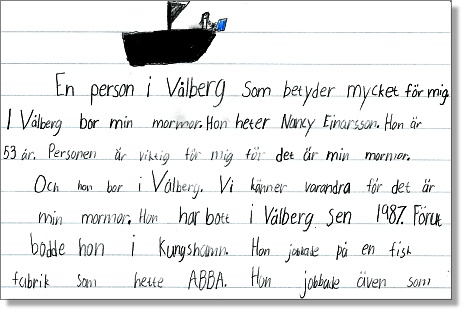 En person i Vålberg som betyder mycket för mig
I Vålberg bor min mormor. Hon heter Nancy Einarsson. Hon är
53 år. Personen är viktig för mig för det är min mormor.
Och hon bor i Vålberg. Vi känner varandra för det är
min mormor. Hon har bott i Vålberg sen 1987. Förut
bodde hon i Kungshamn. Hon jobbade på en fisk
fabrik som hette ABBA. Hon jobbade även som